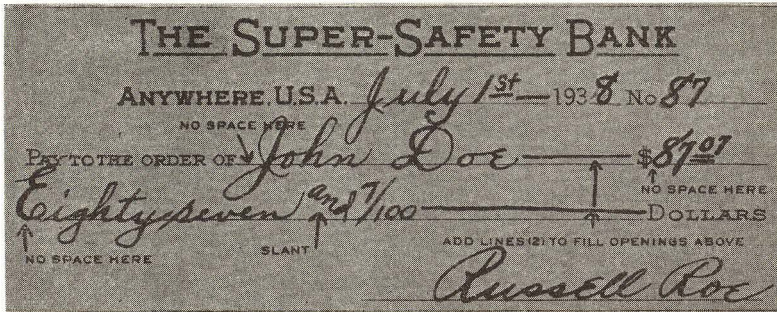 THE SUPER-SAFETY BANK
ANYWHERE, U.S.A. July 1st 1938 No 87
NO SPACE HERE
PAY TO THE ORDER OF John Doe $87 07
NO SPACE HERE
Eighty seven and 7/100 DOLLARS
SLANT
ADD LINES (2) TO FILL OPENINGS ABOVE
NO SPACE HERE
Russell Roe